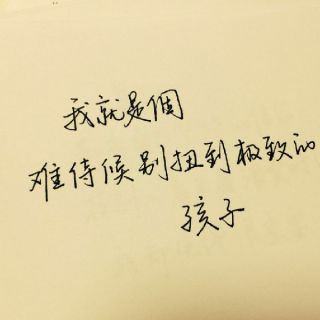 我就是個
难侍候别扭到极致的
孩子